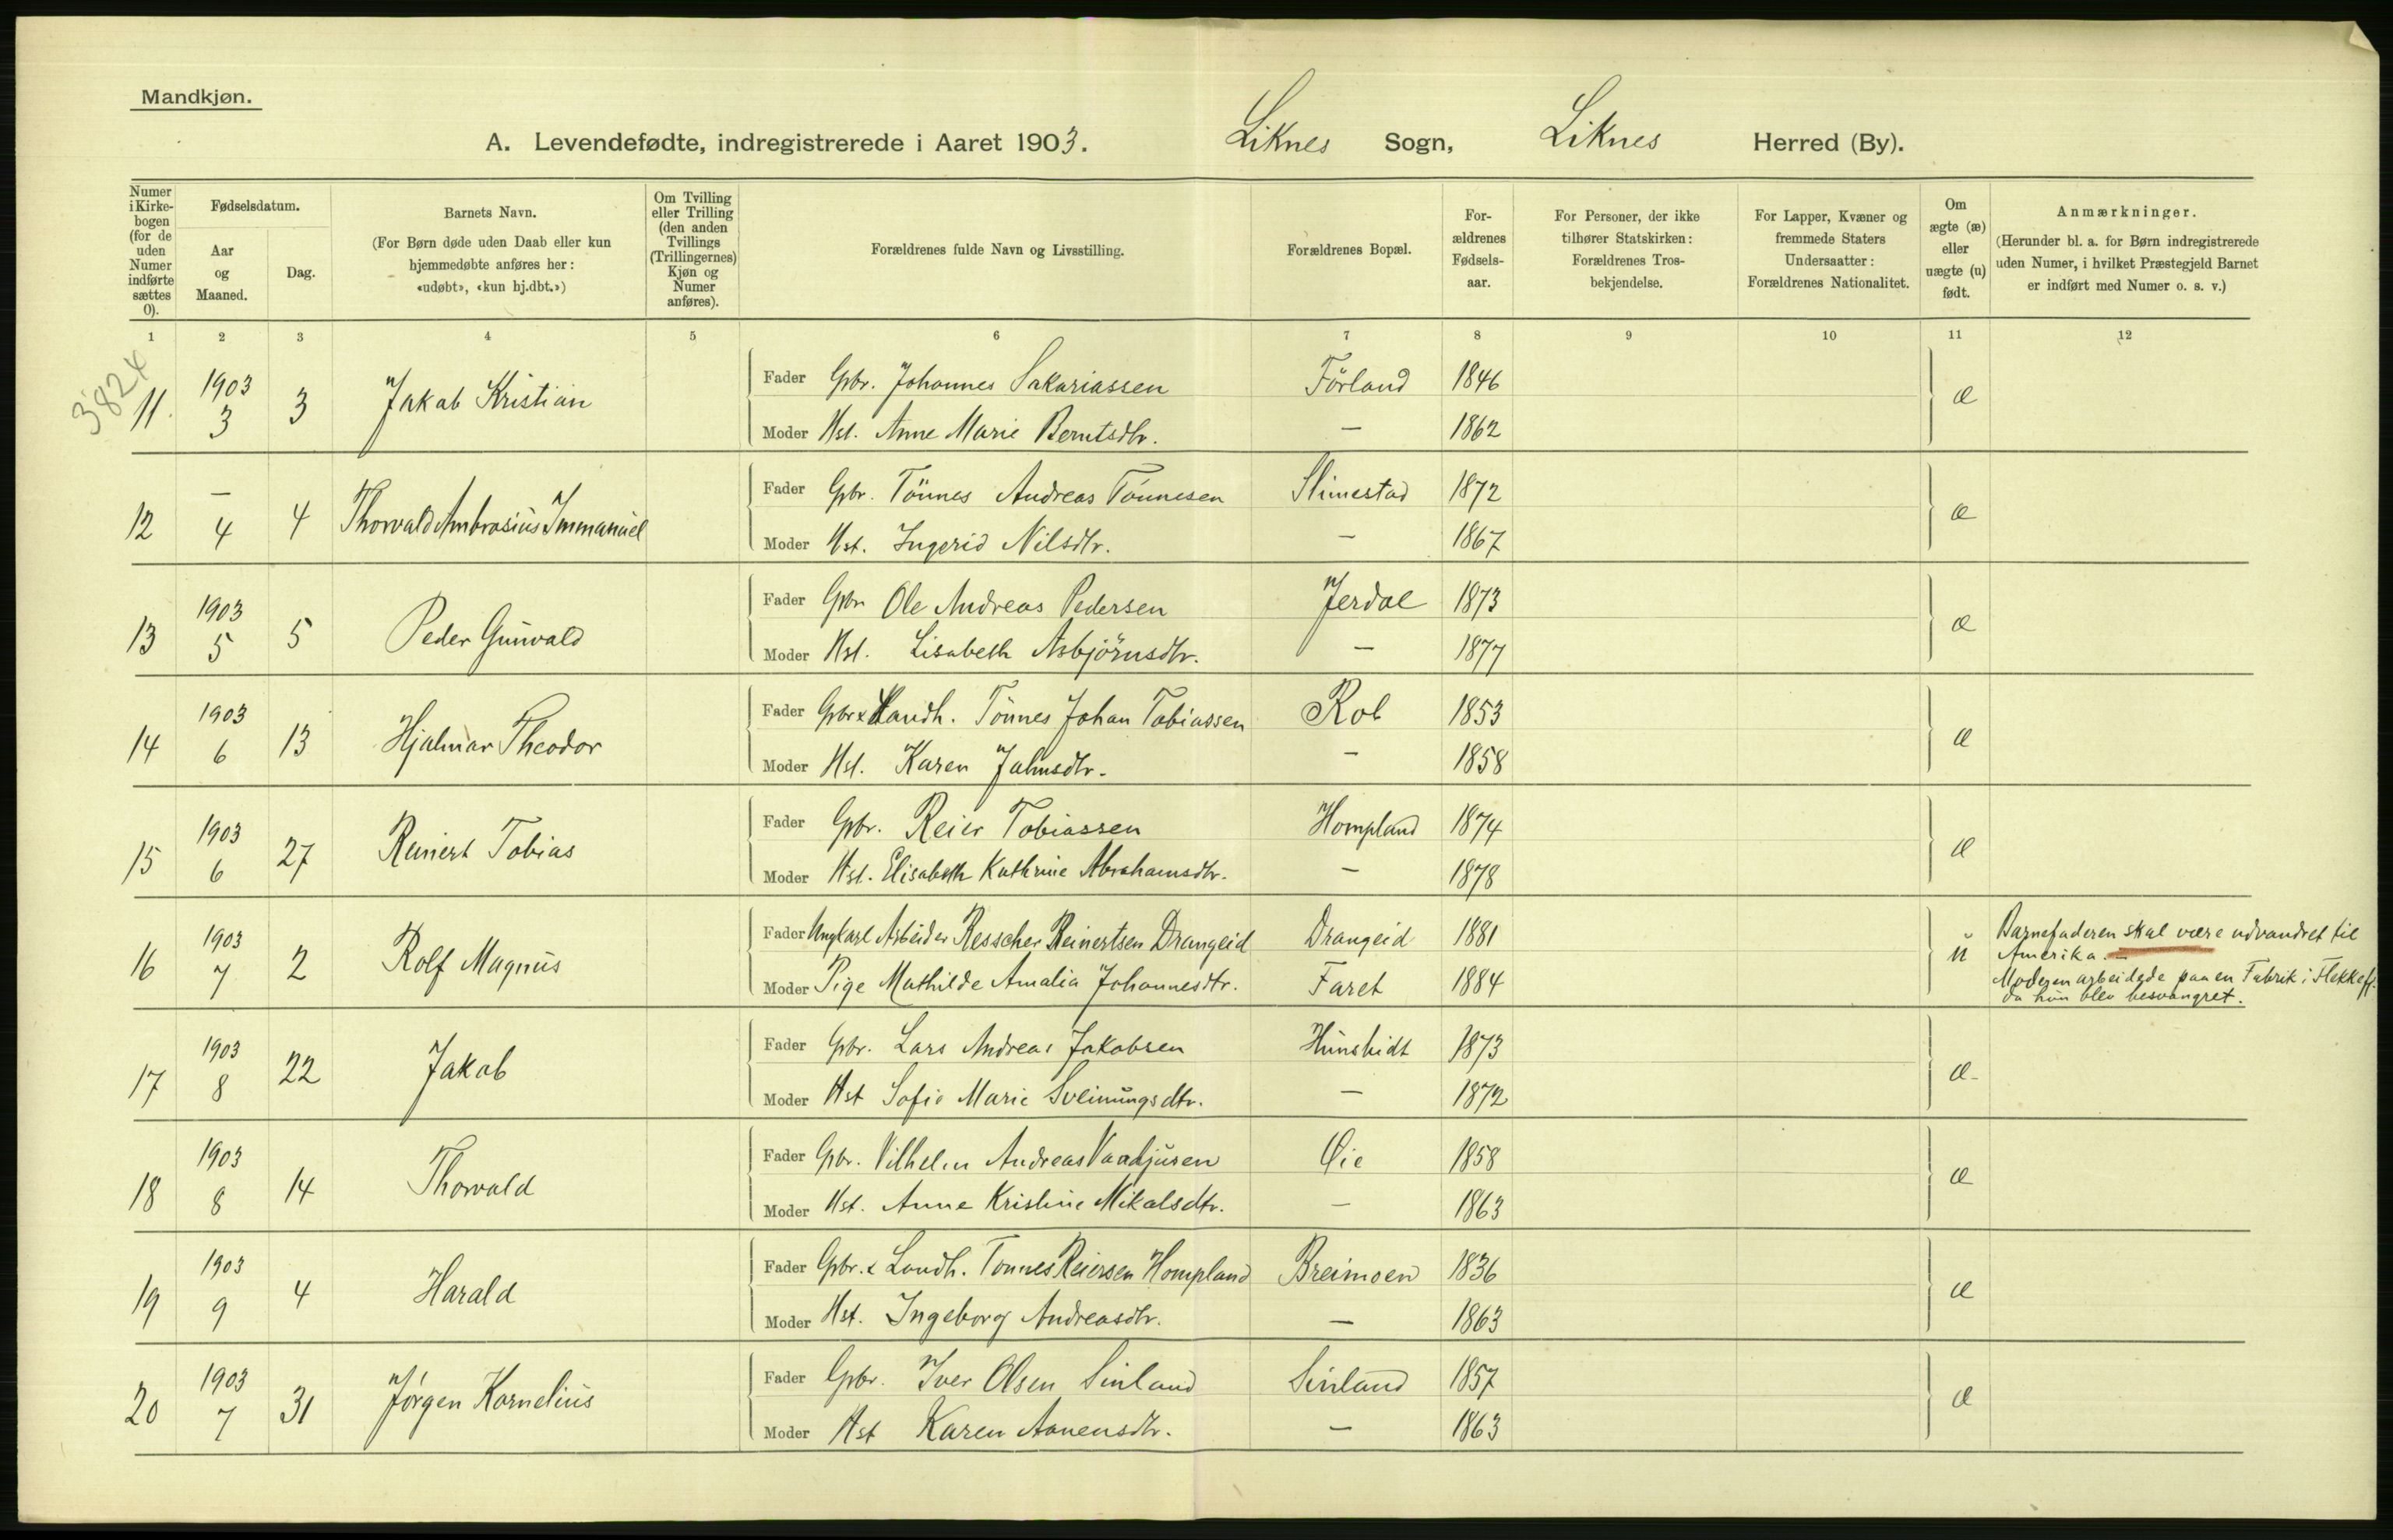 Mandkjøn.
A. Levendefødte, indregistrerede i Aaret 1903. Liknes Sogn, Liknes Herred (By).
Numer i Kirkebogen (for de uden Numer indførte sættes 0).
Fødselsdatum.
Aar og Maaned.
Dag.
Barnets Navn.
(For Børn døde uden Daab eller kun hjemmedøbte anføres her: «udøbt», «kun hj.dbt.»)
Om Tvilling eller Trilling (den anden Tvillings (Trillingernes) Kjøn og Numer anføres).
Forældrenes fulde Navn og Livsstilling.
Forældrenes Bopæl.
For-ældrenes Fødsels-aar.
For Personer, der ikke tilhører Statskirken: Forældrenes Tros-bekjendelse.
For Lapper, Kvæner og fremmede Staters Undersaatter: Forældrenes Nationalitet.
Om ægte (æ) eller uægte (u) født.
Anmærkninger.
(Herunder bl. a. for Børn indregistrerede uden Numer, i hvilket Præstegjeld Barnet er indført med Numer o. s. v.)
1 2 3 4 5 6 7 8 9 10 11 12
3824
11. 1903 3 3 Jakob Kristian Fader Gbr. Johannes Sakariassen Førland 1846 æ
Moder Hst. Anne Marie Berntsdtr. — 1862
12 — 4 4 Thorvald Ambrosius Immanuel Fader Gbr. Tönnes Andreas Tönnesen Slimestad 1872 æ
Moder Hst. Ingerid Nilsdtr. — 1867
13 1903 5 5 Peder Gunvald Fader Gbr Ole Andreas Pedersen Jerdal 1873 æ
Moder Hst. Lisabeth Asbjörnsdtr. — 1877
14 1903 6 13 Hjalmar Theodor Fader Gbr & Handh. Tönnes Johan Tobiassen Röl 1853 æ
Moder Hst. Karen Jahnsdtr. — 1858
15 1903 6 27 Reinert Tobias Fader Gbr. Reier Tobiassen Hompland 1874 æ
Moder Hst. Elisabeth Kathrine Abrahamsdtr. — 1878
16 1903 7 2 Rolf Magnus Fader Ungkarl Arbeider Resscher Reinertsen Drangeid Drangeid 1881 u Barnefaderen skal være udvandret til
Amerika. —
Moder Pige Mathilde Amalia Johannesdtr. Faret 1884 Moderen arbeidede paa en Fabrik i Flekkefj.
da hun blev besvangret.
17 1903 8 22 Jakob Fader Gbr. Lars Andreas Jakobsen 1873 æ
Moder Hst Sofie Marie Sveinungsdtr. — 1872
18 1903 8 14 Thorvald Fader Gbr. Vilhelm Andreas Vaadjusen Øie 1858 æ
Moder Hst. Anne Kristine Mikalsdtr. — 1863
19 1903 9 4 Harald Fader Gbr. & Landh. Tönnes Reiersen Hompland Breimoen 1836 æ
Moder Hst. Ingeborg Andreasdtr. — 1863
20 1903 7 31 Jörgen Kornelius Fader Gbr. Iver Olsen Sinland Sinland 1857 æ
Moder Hst Karen Aanensdtr. — 1863